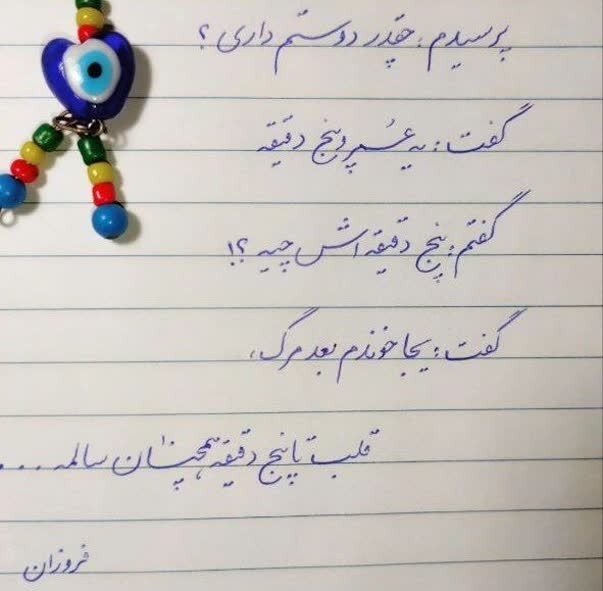 پرسیدم: چقدر دوستم داری؟
گفت: یه عُمر و پنج دقیقه
گفتم: پنج دقیقه اش چیه؟!
گفت: یجا خوندم بعد مرگ،
قلب تا پنج دقیقه، همچنان سالمه....
فروزان